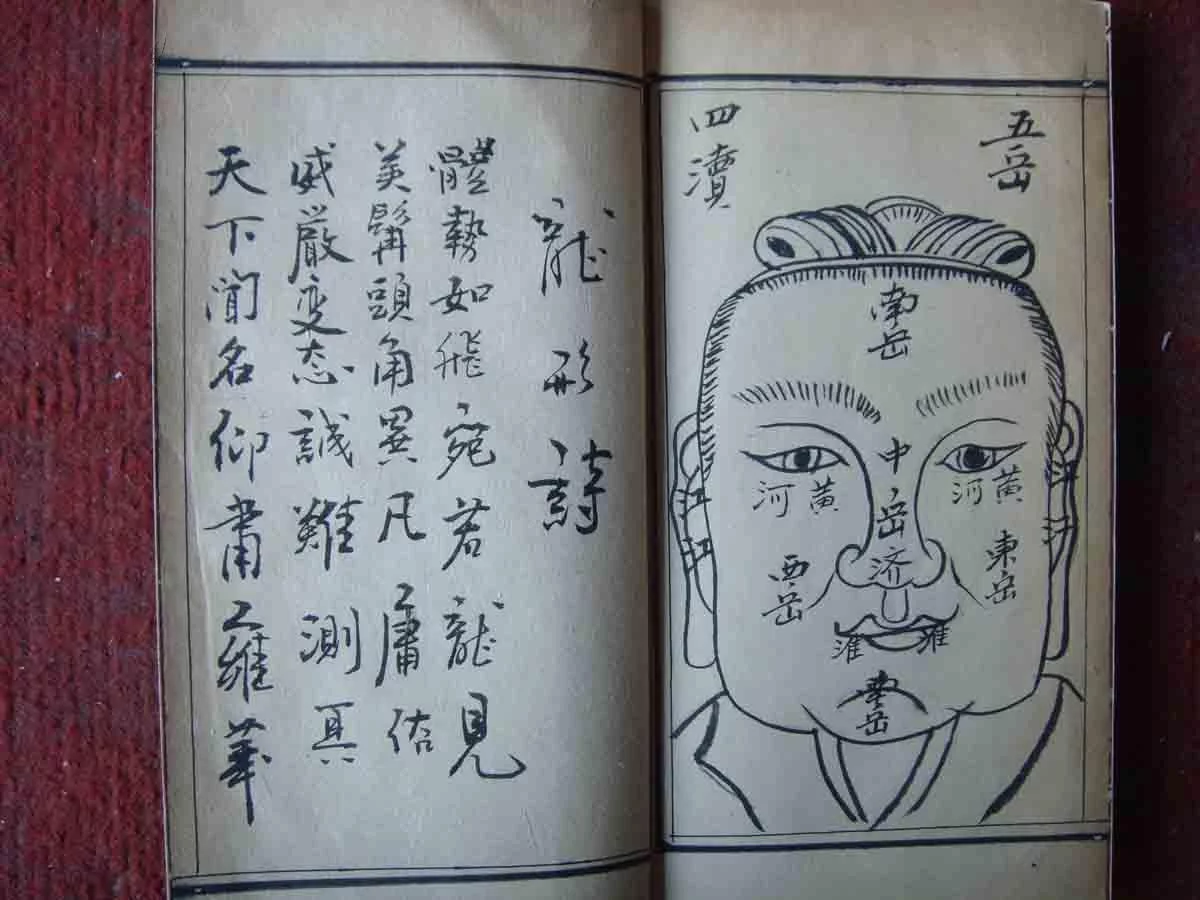 五岳
四瀆
南岳
中岳
黄河
黄河
江
江
江
江
東岳
西岳
济
淮
淮
岳
龍形詩
體勢如飛宛若龍見
美髯頭角異凡庸
威嚴变态誠難測
天下聞名仰肅雍華